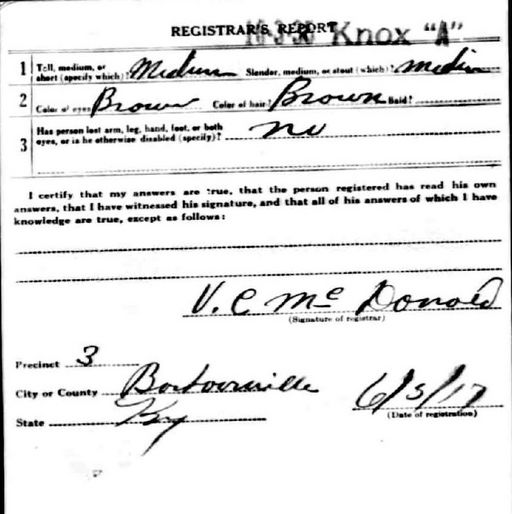 REGISTRAR'S REPORT
16-3-30 Knox "A"
1 Tall, medium, or short (specify which)? Medium Slender, medium, or stout (which)? medium
2 Color of eyes Brown Color of hair? Brown Bald?
3 Has person lost arm, leg, hand, foot, or both
eyes, or is he otherwise disabled (specify)? no
I certify that my answers are true, that the person registered has read his own
answers, that I have witnessed his signature, and that all of his answers of which I have
knowledge are true, except as follows:
V. C. McDonald
(Signature of registrar)
Precinct 3
City or County
State Ky
6/5/17
(Date of registration)